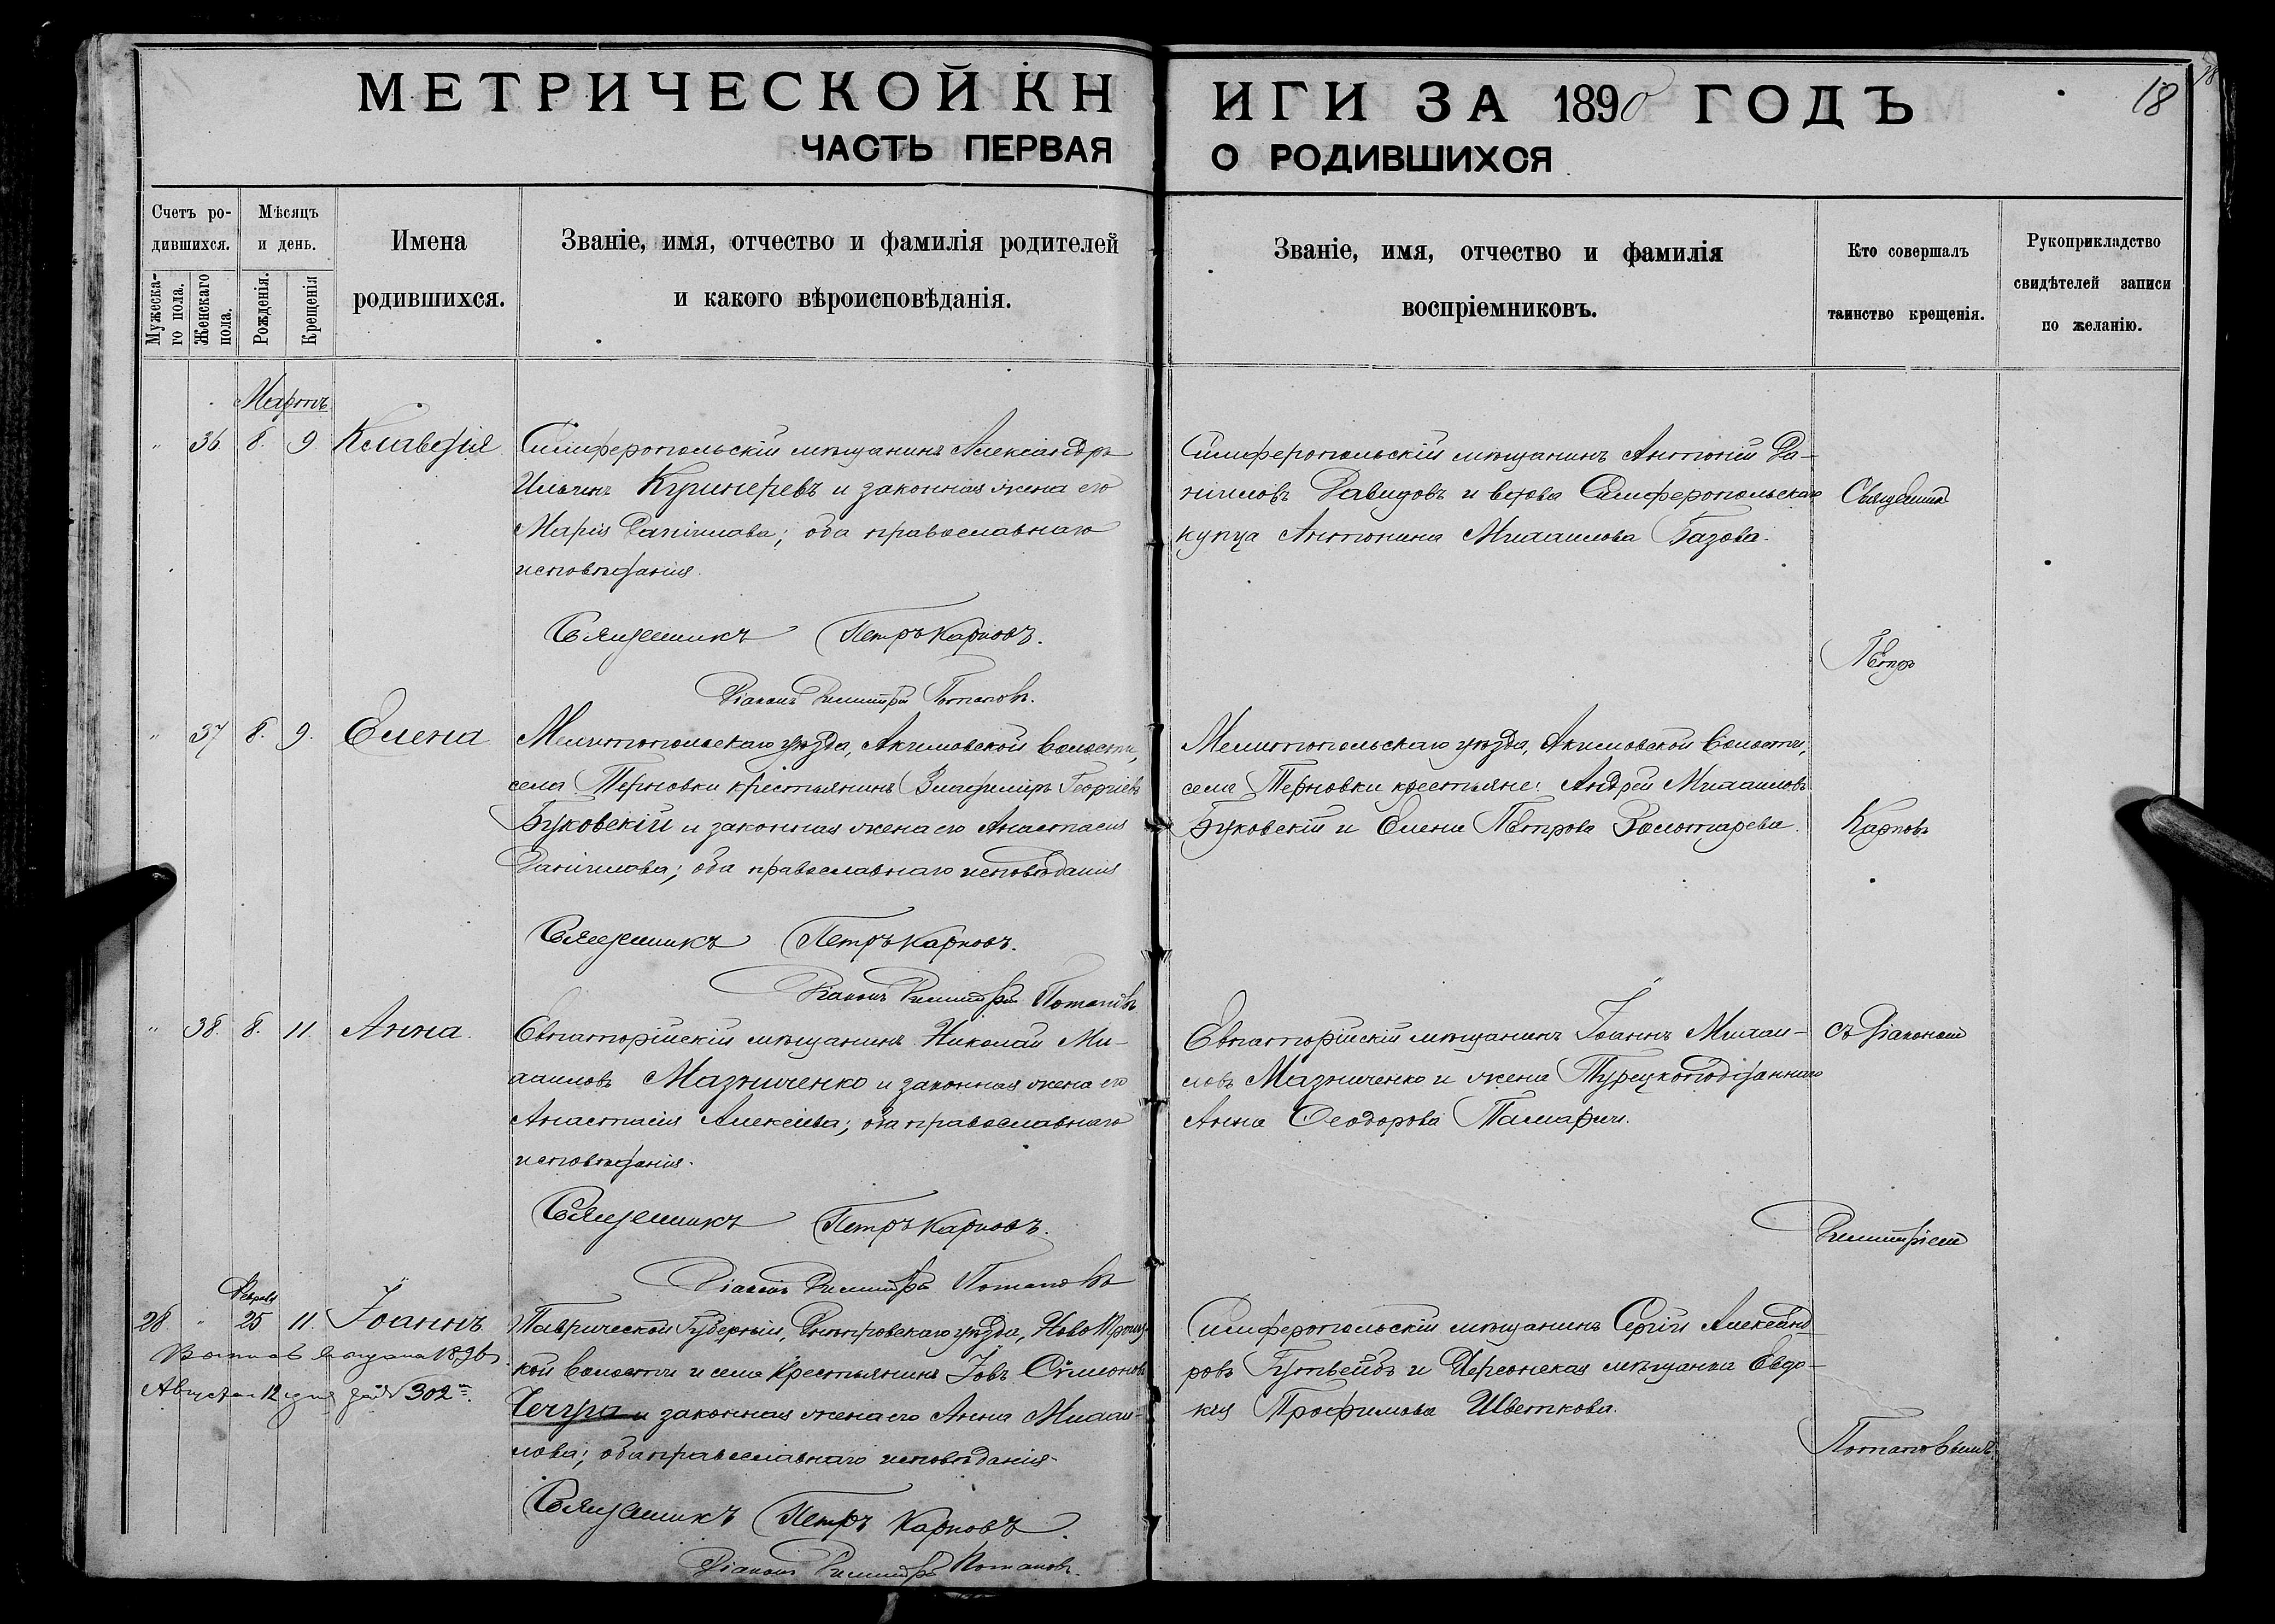 МЕТРИЧЕСКОЙ КНИГИ ЗА 1890 ГОДЪ
18
ЧАСТЬ ПЕРВАЯ О РОДИВШИХСЯ
Счетъ родившихся.
Мужескаго пола.
Женскаго пола.
Мѣсяцъ и день.
Рожденія.
Крещенія
Имена
родившихся.
Званіе, имя, отчество и фамилія родителей
и какого вѣроисповѣданія.
Званіе, имя, отчество и фамилія
воспріемниковъ.
Кто совершалъ
таинство крещенія.
Рукоприкладство
свидѣтелей записи
по желанію.
Мартъ
" 36 8. 9. Клавдія
Симферопольскій мѣщанинъ Александръ
Ильинъ и законная жена его
Марія Даніилова; оба православнаго
исповѣданія.
Священникъ Петръ Карповъ.
Діаконъ Димитрій Потаповъ.
Симферопольскій мѣщанинъ Антоній Да-
ніиловъ Давидовъ и вдова Симферопольскаго
купца Антонина Михаилова Базова.
Священник
Петръ
" 37 8. 9. Елена
Мелитопольскаго уѣзда, Акимовской волости,
села Терновки крестьянинъ Владиміръ Георгіевъ
Буковскій и законная жена его Анастасія
Даніилова; оба православнаго исповѣданія
Священникъ Петръ Карповъ.
Діаконъ Димитрій Потаповъ
Мелитопольскаго уѣзда, Акимовской волости,
села Терновки крестьяне: Андрей Михаиловъ
Буковскій и Елена Петрова Золотарева.
Карповъ
" 38. 8. 11. Анна.
Евпаторійскій мѣщанинъ Николай Ми-
хаиловъ Мазниченко и законная жена его
Анастасія Алексіева; оба православнаго
исповѣданія.
Священникъ Петръ Карповъ.
Діаконъ Димитрій Потаповъ
Евпаторійскій мѣщанинъ Іоаннъ Михаи-
ловъ Мазниченко и жена Турецкоподданнаго
Анна Ѳеодорова
съ Діаконом
Димитріем
Февраля
28 " 25 11. Іоаннъ
1896
Августа 12 дня № 302
Таврической Губерніи, Днѣпровскаго уѣзда, Ново Троиц-
кой волости и села крестьянинъ Іовъ Сѵмеоновъ
и законная жена его Анна Михаи-
лова; оба православнаго исповѣданія.
Священникъ Петръ Карповъ.
Діаконъ Димитрій Потаповъ.
Симферопольскій мѣщанинъ Сергій Александ-
ровъ и Херсонская мѣщанка Евдо-
кія Трофимова Цветкова.
Потаповымъ.